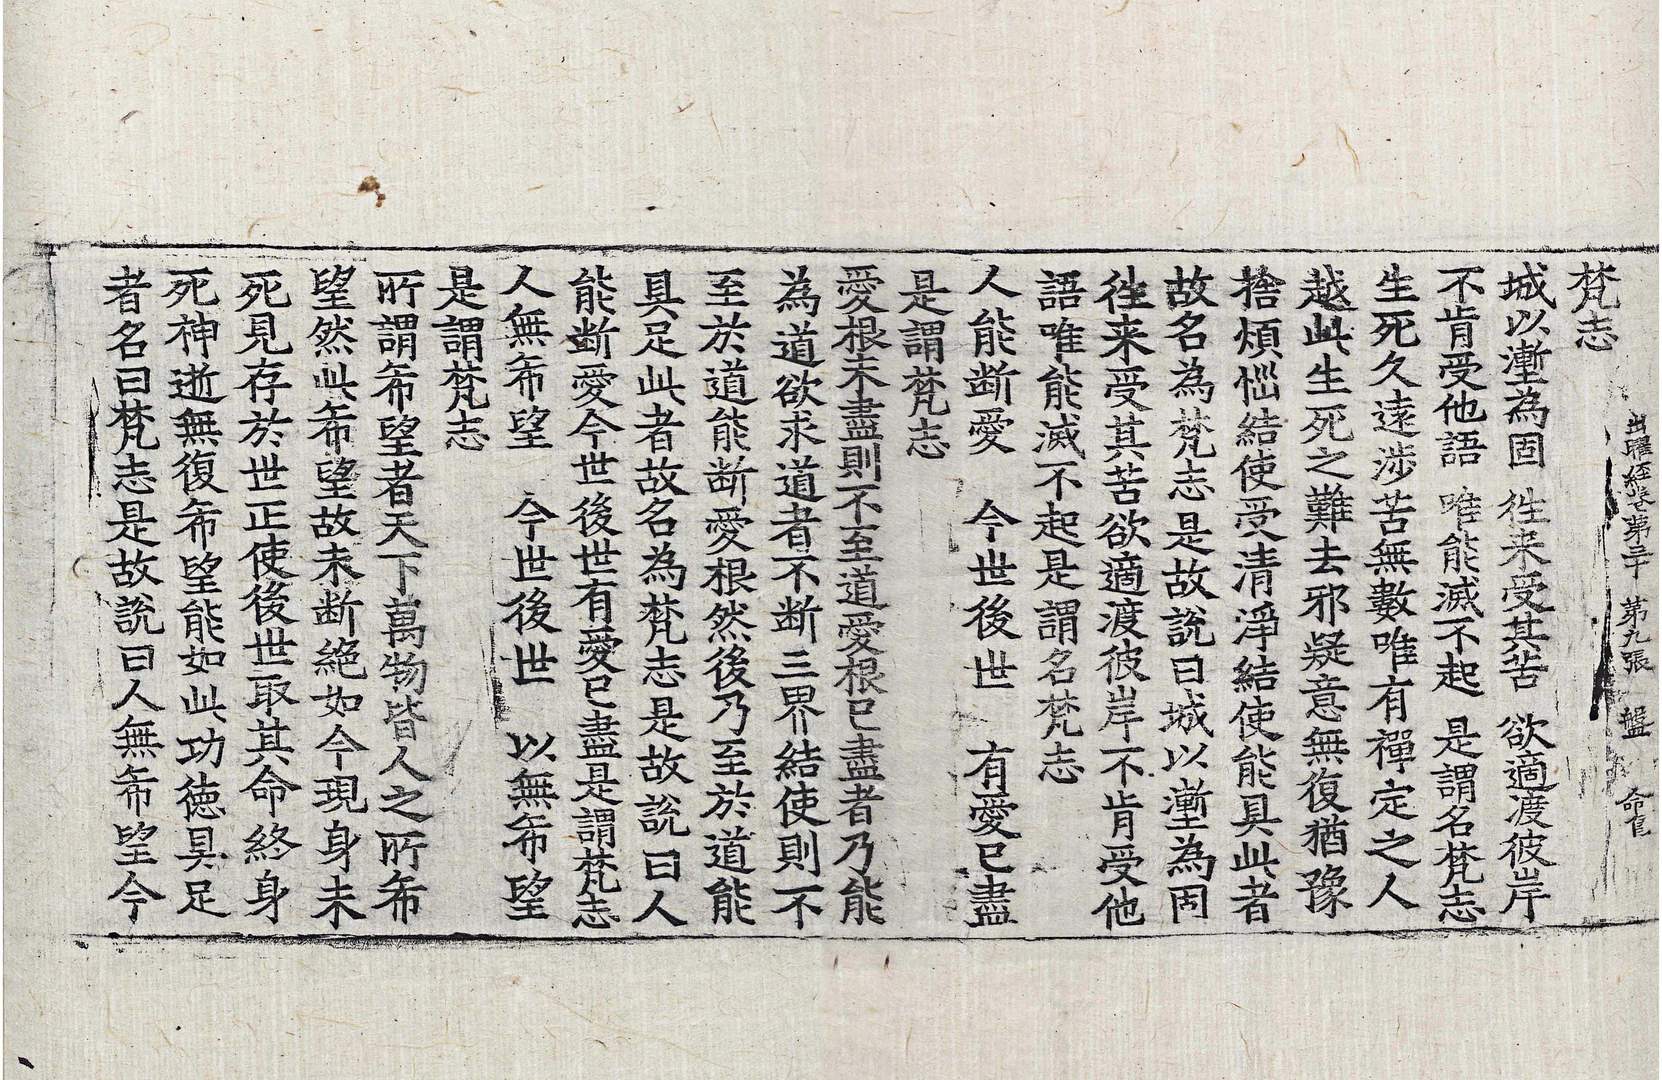 出曜經卷第三十　第九張　盤　命官
梵志
城以塹為固　往来受其苦　欲適渡彼岸
不肯受他語　唯能滅不起　是謂名梵志
生死久遠涉苦無數唯有禪定之人
越此生死之難去邪疑意無復猶豫
捨煩惱結使受清淨結使能具此者
故名為梵志是故說曰城以塹為固
往来受其苦欲適渡彼岸不肯受他
語唯能滅不起是謂名梵志
人能断愛　今世後世　有愛已盡
是謂梵志
愛根未盡則不至道愛根已盡者乃能
為道欲求道者不断三界結使則不
至於道能断愛根然後乃至於道能
具足此者故名為梵志是故說曰人
能断愛今世後世有愛已盡是謂梵志
人無希望　今世後世　以無希望
是謂梵志
所謂希望者天下萬物皆人之所希
望然此希望故未断絶如今現身未
死見存於世正使後世取其命終身
死神逝無復希望能如此功德具足
者名曰梵志是故說曰人無希望今